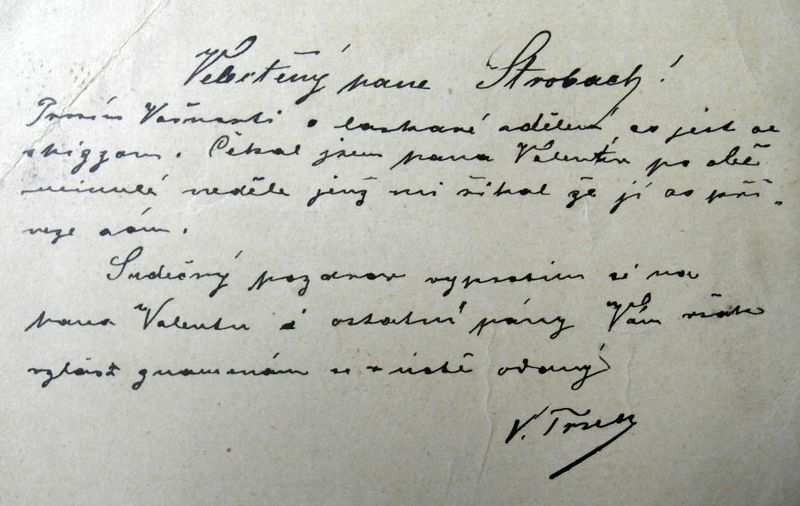 Velectěný pane Strobach!
Prosím Vašnosti o laskavé sdělení, co jest se
skizzou. Čekal jsem pana Valentu po obě
minulé neděle jenž mi říkal že jí as při-
veze sám.
Srdečný pozdrav vyprosím si na
pana Valentu i ostatní pány Vám však
zvlášť znamenám se v úctě odaný
V. Třsek